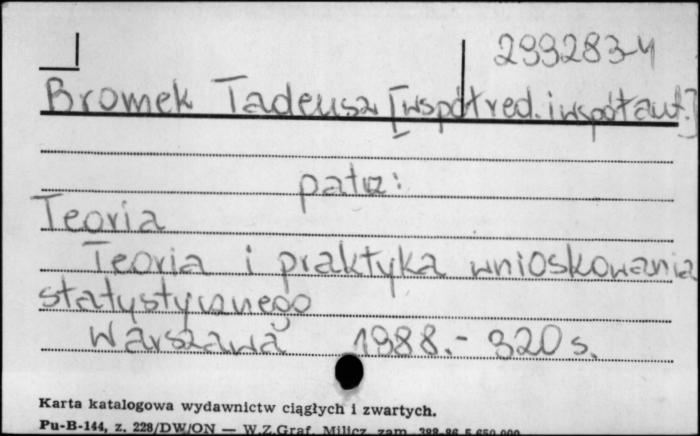 299283-4
Bromek Tadeusz [współred. i współaut.]
patrz:
Teoria
Teoria i praktyka wnioskowania
statystycznego
Warszawa 1988.- 320 s.
Karta katalogowa wydawnictw ciągłych i zwartych.
Pu-B-144, z. 228/DW/ON — W.Z.Graf. Milicz zam. 388-86 5.650.000